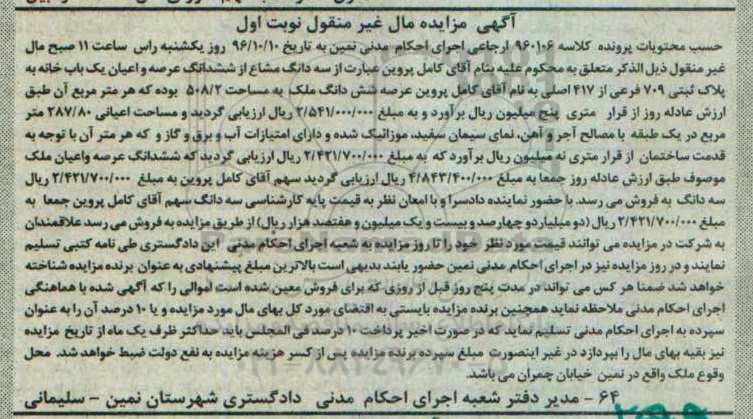 آگهی مزایده مال غیر منقول نوبت اول
حسب محتویات پرونده کلاسه ۹۶۰۱۰۶ ارجاعی اجرای احکام مدنی نمین به تاریخ ۹۶/۱۰/۱۰ روز یکشنبه راس ساعت ۱۱ صبح مال
غیر منقول ذیل الذکر متعلق به محکوم علیه بنام آقای کامل پروین عبارت از سه دانگ مشاع از ششدانگ عرصه و اعیان یک باب خانه به
پلاک ثبتی ۷۰۹ فرعی از ۴۱۷ اصلی به نام آقای کامل پروین عرصه شش دانگ ملک به مساحت ۵۰۸/۲ بوده که هر متر مربع آن طبق
ارزش عادله روز از قرار متری پنج میلیون ریال برآورد و به مبلغ ۲/۵۴۱/۰۰۰/۰۰۰ ریال ارزیابی گردید و مساحت اعیانی ۲۸۷/۸۰ متر
مربع در یک طبقه با مصالح آجر و آهن، نمای سیمان سفید، موزائیک شده و دارای امتیازات آب و برق و گاز و که هر متر آن با توجه به
قدمت ساختمان از قرار متری نه میلیون ریال برآورد که به مبلغ ۲/۴۲۱/۷۰۰/۰۰۰ ریال ارزیابی گردید که ششدانگ عرصه واعیان ملک
موصوف طبق ارزش عادله روز جمعا به مبلغ ۴/۸۴۳/۴۰۰/۰۰۰ ریال ارزیابی گردید سهم آقای کامل پروین به مبلغ ۲/۴۲۱/۷۰۰/۰۰۰ ریال
سه دانگ به فروش می رسد. با حضور نماینده دادسرا و با امعان نظر به قیمت پایه کارشناسی سه دانگ سهم آقای کامل پروین جمعا به
مبلغ ۲/۴۲۱/۷۰۰/۰۰۰ ریال (دو میلیارد و چهارصد و بیست و یک میلیون و هفتصد هزار ریال) از طریق مزایده به فروش می رسد علاقمندان
به شرکت در مزایده می توانند قیمت مورد نظر خود را تا روز مزایده به شعبه اجرای احکام مدنی این دادگستری طی نامه کتبی تسلیم
نمایند و در روز مزایده نیز در اجرای احکام مدنی نمین حضور یابند بدیهی است بالاترین مبلغ پیشنهادی به عنوان برنده مزایده شناخته
خواهد شد ضمنا هر کس می تواند در مدت پنج روز قبل از روزی که برای فروش معین شده است اموالی را که آگهی شده با هماهنگی
اجرای احکام مدنی ملاحظه نماید همچنین برنده مزایده بایستی به اقتضای مورد کل بهای مال مورد مزایده و یا ۱۰ درصد آن را به عنوان
سپرده به اجرای احکام مدنی تسلیم نماید که در صورت اخیر پرداخت ۱۰ درصد فی المجلس باید حداکثر ظرف یک ماه از تاریخ مزایده
نیز بقیه بهای مال را بپردازد در غیر اینصورت مبلغ سپرده برنده مزایده پس از کسر هزینه مزایده به نفع دولت ضبط خواهد شد. محل
وقوع ملک واقع در نمین خیابان چمران می باشد.
۶۴ - مدیر دفتر شعبه اجرای احکام مدنی دادگستری شهرستان نمین - سلیمانی